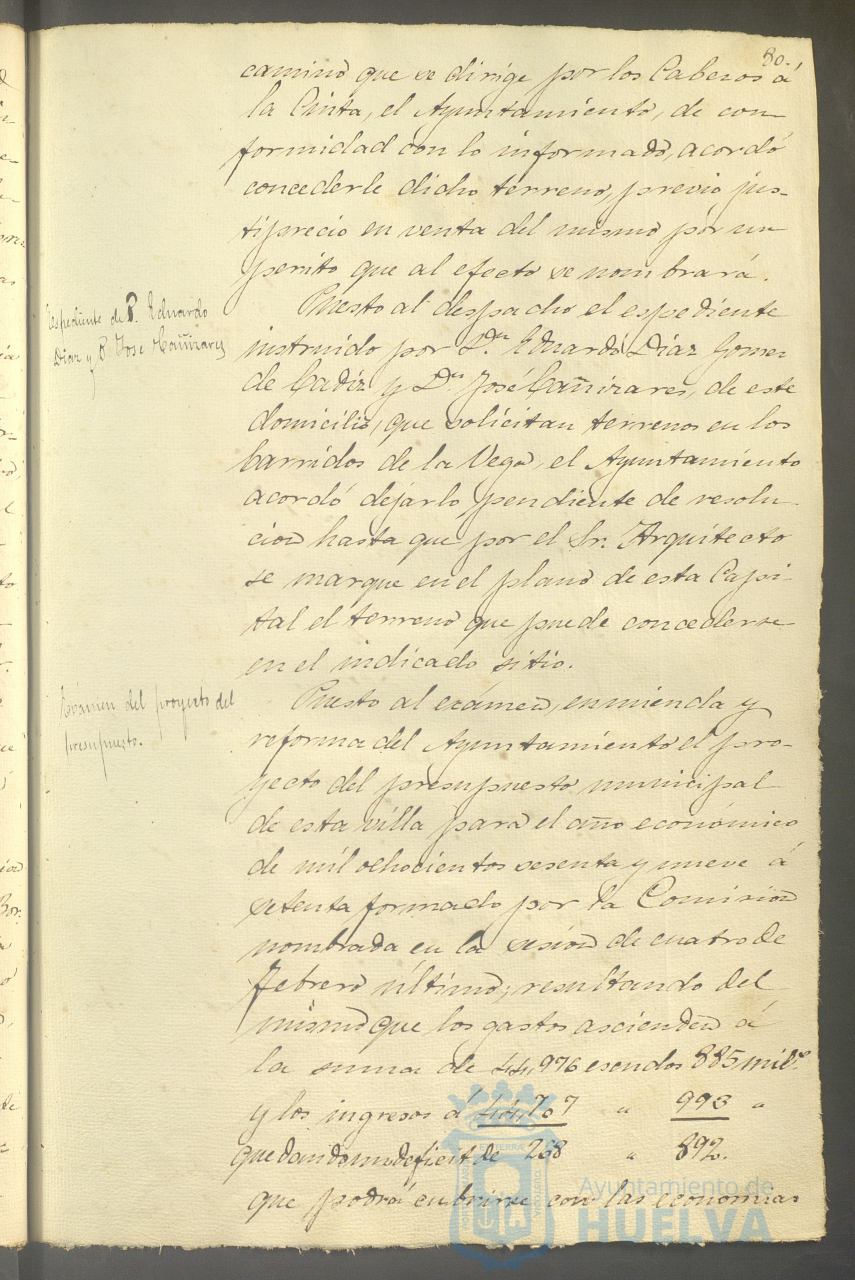 80.
camino que se dirige por los Cabezos á
la Cinta, el Ayuntamiento, de con-
formidad con lo informado, acordó
concederle dicho terreno, previo jus-
tiprecio en venta del mismo por un
perito que al efecto se nombrará.
Espediente de D. Eduardo
Diaz y D Jose Cañizares
Puesto al despacho el espediente
instruido por D.n Eduardo Diaz Gomez
de Cadiz y D.n José Cañizares, de este
domicilio, que solicitan terrenos en los
barridos de la Vega, el Ayuntamiento
acordó dejarlo pendiente de resolu-
cion hasta que por el Sr. Arquitecto
se marque en el plano de esta Capi-
tal el terreno que puede concederse
en el indicado sitio.
Exámen del proyecto del
presupuesto.
Puesto al exámen, enmienda y
reforma del Ayuntamiento el pro-
yecto del presupuesto municipal
de esta villa para el año económico
de mil ochocientos sesenta y nueve á
setenta formado por la Comision
nombrada en la sesion de cuatro de
Febrero último; resultando del
mismo que los gastos ascienden á
la suma de 44,976 escudos 885 mils.
y los ingresos á 44,707 " 993 "
quedando un deficit de 268 " 892.
que podrá cubrirse con las economias
Ayuntamiento de
HUELVA